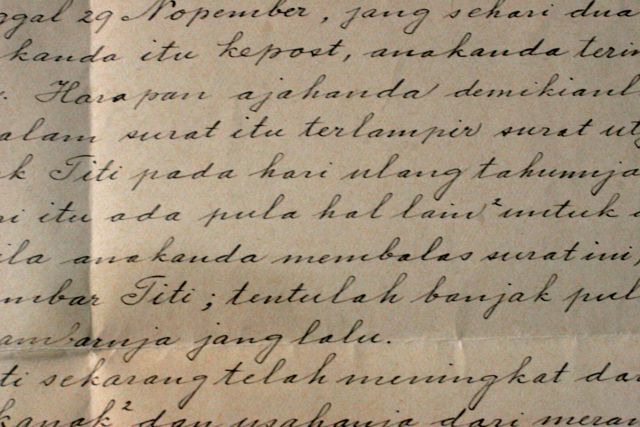 ggal 29 Nopember, jang sehari dua
kanda itu kepost, anakanda terim
. Harapan ajahanda demikianl
alam surat itu terlampir surat ut
k Titi pada hari ulang tahunnja
ri itu ada pula hal lain² untuk
ila anakanda membalas surat ini,
mbar Titi; tentulah banjak pul
ambarnja jang lalu.
ti sekarang telah meningkat dar
kanak² dan usahanja dari meran